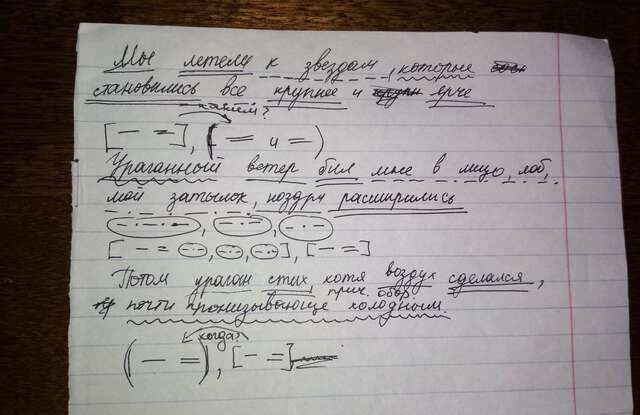 Мы летели к звездам, которые
становились все крупнее и ярче
каким?
[— =], (= и =)
Ураганный ветер бил мне в лицо, лоб,
мой затылок, ноздри расширились
[— =], [— =]
Потом ураган стих, хотя воздух сделался,
прич. обор.
почти пронизывающе холодным.
когда?
(— =), [— =]